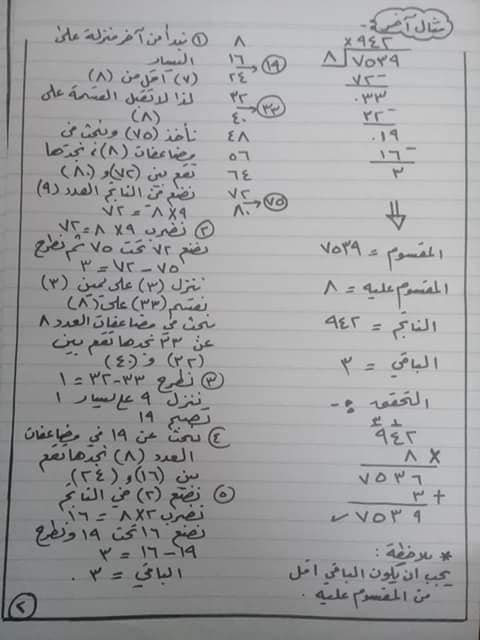 مثال آخر :-
× ٩٤٢
٨ ٧٥٣٩
٧٢ -
٠٣٣
٣٢ -
٠١٩
١٦ -
٣
المقسوم = ٧٥٣٩
المقسوم عليه = ٨
الناتج = ٩٤٢
الباقي = ٣
التحقق :-
٣ ١
٩٤٢
٨ ×
٧٥٣٦
٣ +
٧٥٣٩ ✓
* ملاحظة :
يجب ان يكون الباقي اقل
من المقسوم عليه .
٨
١٦
٢٤ → ١٩
٣٢
٤٠ → ٣٣
٤٨
٥٦
٦٤
٧٢
٨٠ → ٧٥
① نبدأ من آخر منزلة على
اليسار
(٧) اقل من (٨)
لذا لا تقبل القسمة على
(٨)
نأخذ (٧٥) ونبحث في
مضاعفات (٨)، نجدها
تقع بين (٧٢) و (٨٠)
نضع في الناتج العدد (٩)
٩×٨ = ٧٢
② نضرب ٩×٨ = ٧٢
نضع ٧٢ تحت ٧٥ ثم نطرح
٧٥ - ٧٢ = ٣
ننزل (٣) على يمين (٣)
نقسم (٣٣) على (٨)
نبحث في مضاعفات العدد ٨
عن ٣٣ نجدها تقع بين
(٣٢) و (٤٠)
③ نطرح ٣٣-٣٢ = ١
ننزل ٩ على يسار ١
تصبح ١٩
④ نبحث عن ١٩ في مضاعفات
العدد (٨) نجدها تقع
بين (١٦) و (٢٤)
⑤ نضع (٢) في الناتج
نضرب ٢×٨ = ١٦
نضع ١٦ تحت ١٩ ونطرح
١٩-١٦ = ٣
الباقي = ٣ .
٢